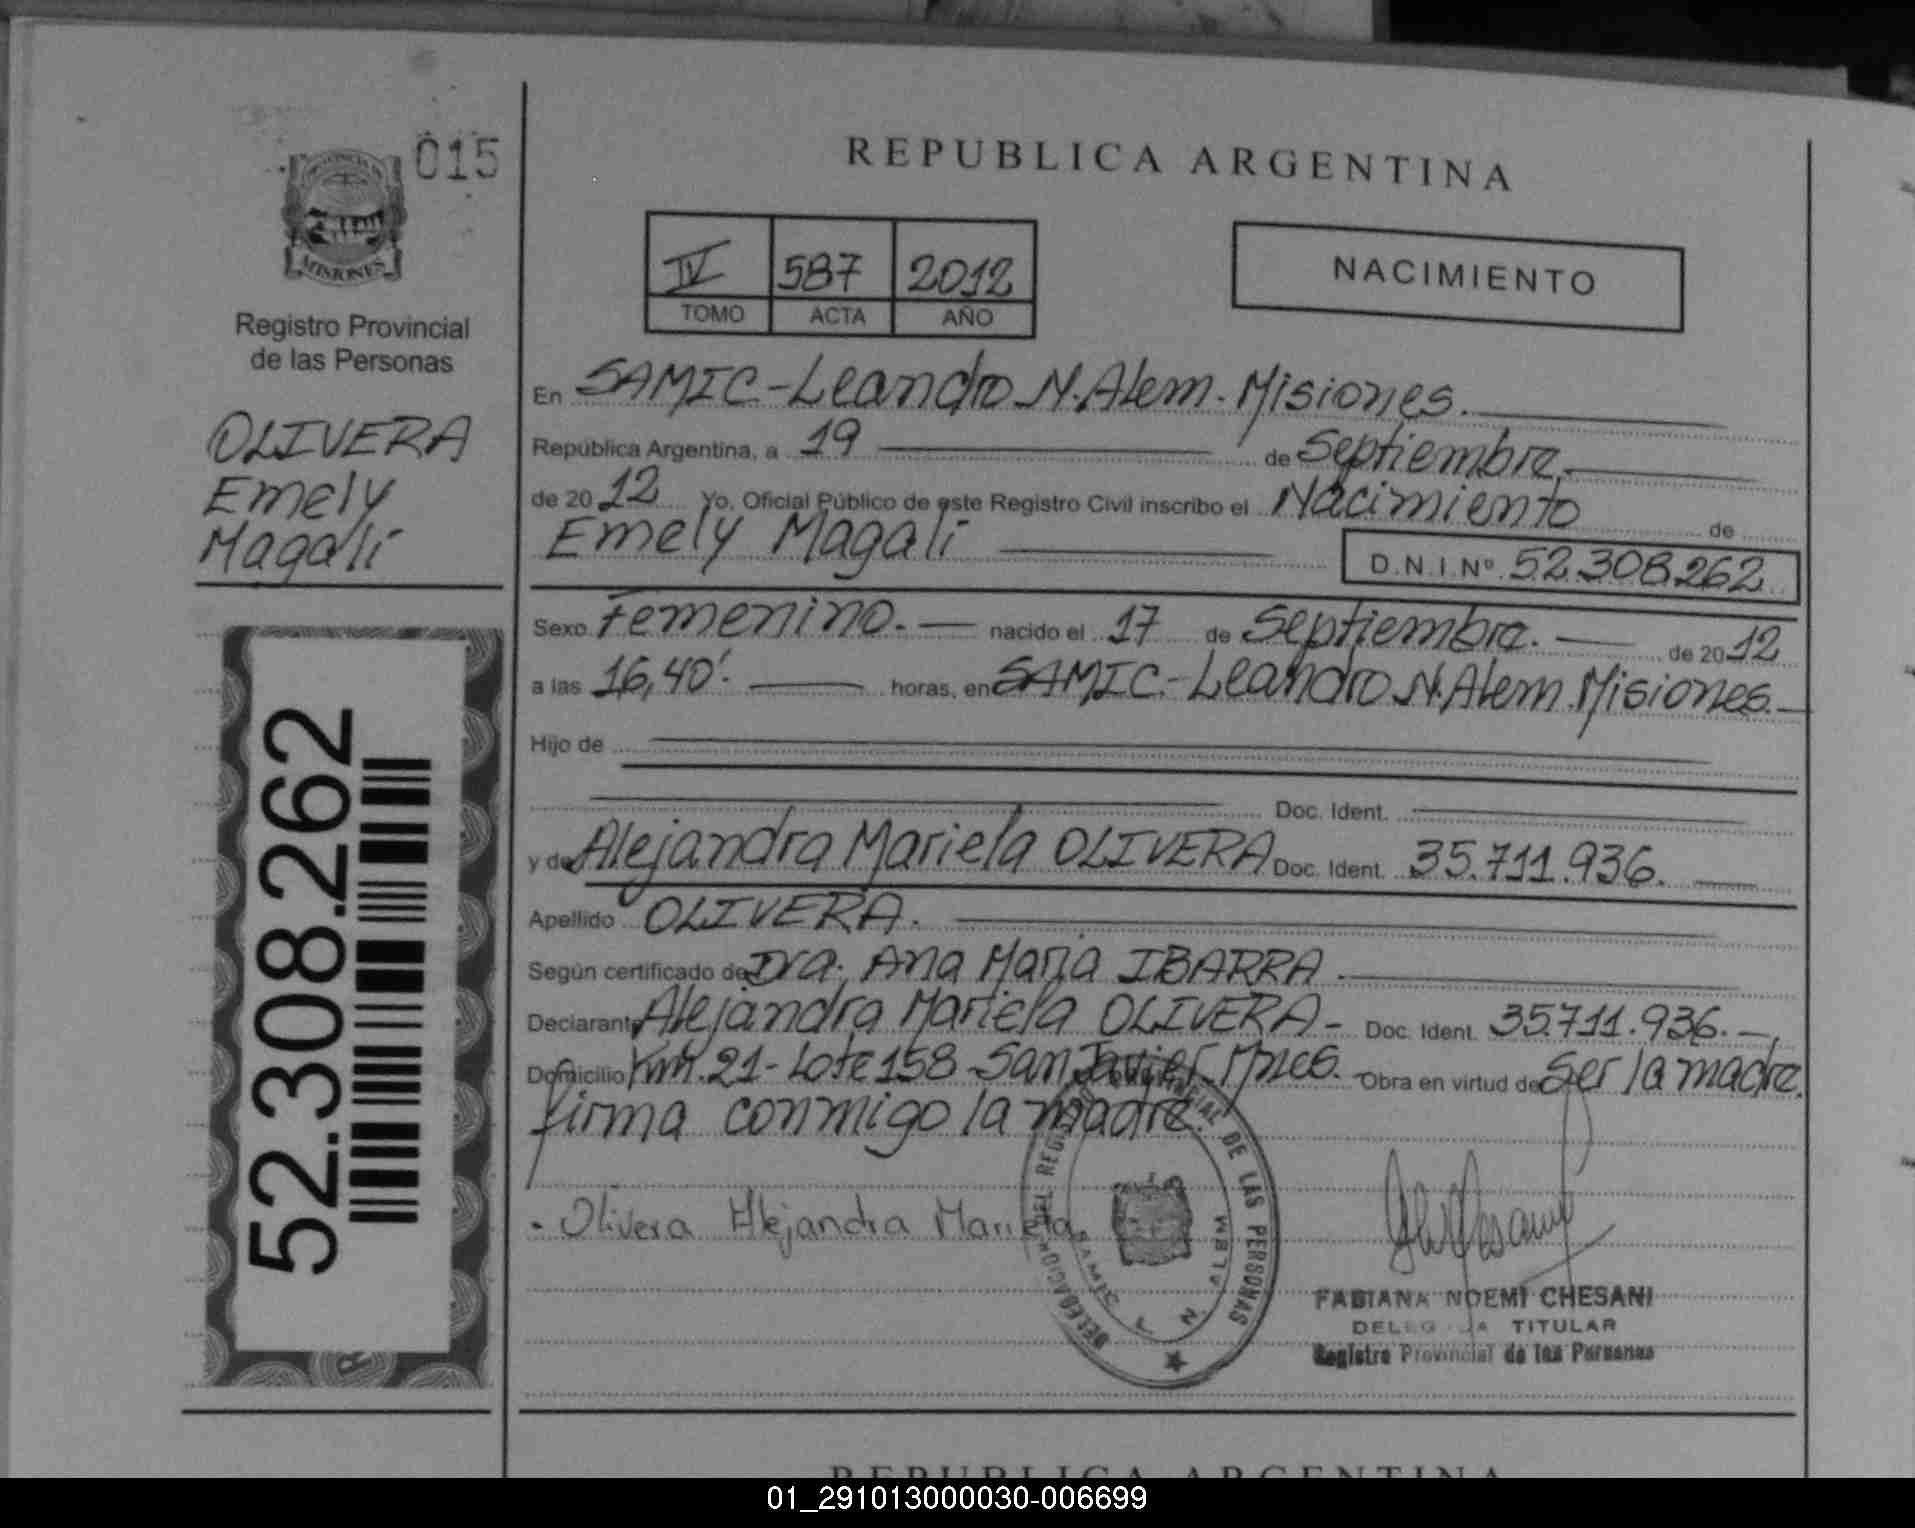 015
PROVINCIA
MISIONES
Registro Provincial
de las Personas
OLIVERA
Emely
Magali
52.308.262
REPUBLICA ARGENTINA
IV 587 2012
TOMO ACTA AÑO
NACIMIENTO
En SAMIC.-Leandro N. Alem. Misiones.
República Argentina, a 19 de Septiembre,
de 2012 Yo, Oficial Público de este Registro Civil inscribo el Nacimiento de
Emely Magali D.N.I.Nº 52.308.262
Sexo Femenino. nacido el 17 de Septiembre. de 2012
a las 16,40'. horas, en SAMIC.-Leandro N. Alem. Misiones.
Hijo de
Doc. Ident.
y de Alejandra Mariela OLIVERA Doc. Ident. 35.711.936.
Apellido OLIVERA.
Según certificado de Dra. Ana María IBARRA.
Declarante Alejandra Mariela OLIVERA- Doc. Ident. 35.711.936.-
Domicilio Km. 21- Lote 158. San Javier. Mnes. Obra en virtud de Ser la madre.
firma conmigo la madre.
DELEGACION DEL REGISTRO PROVINCIAL DE LAS PERSONAS
SAMIC L N ALEM
Olivera Alejandra Mariela
FABIANA NOEMI CHESANI
DELEGADA TITULAR
Registro Provincial de las Personas
REPUBLICA ARGENTINA
01_291013000030-006699